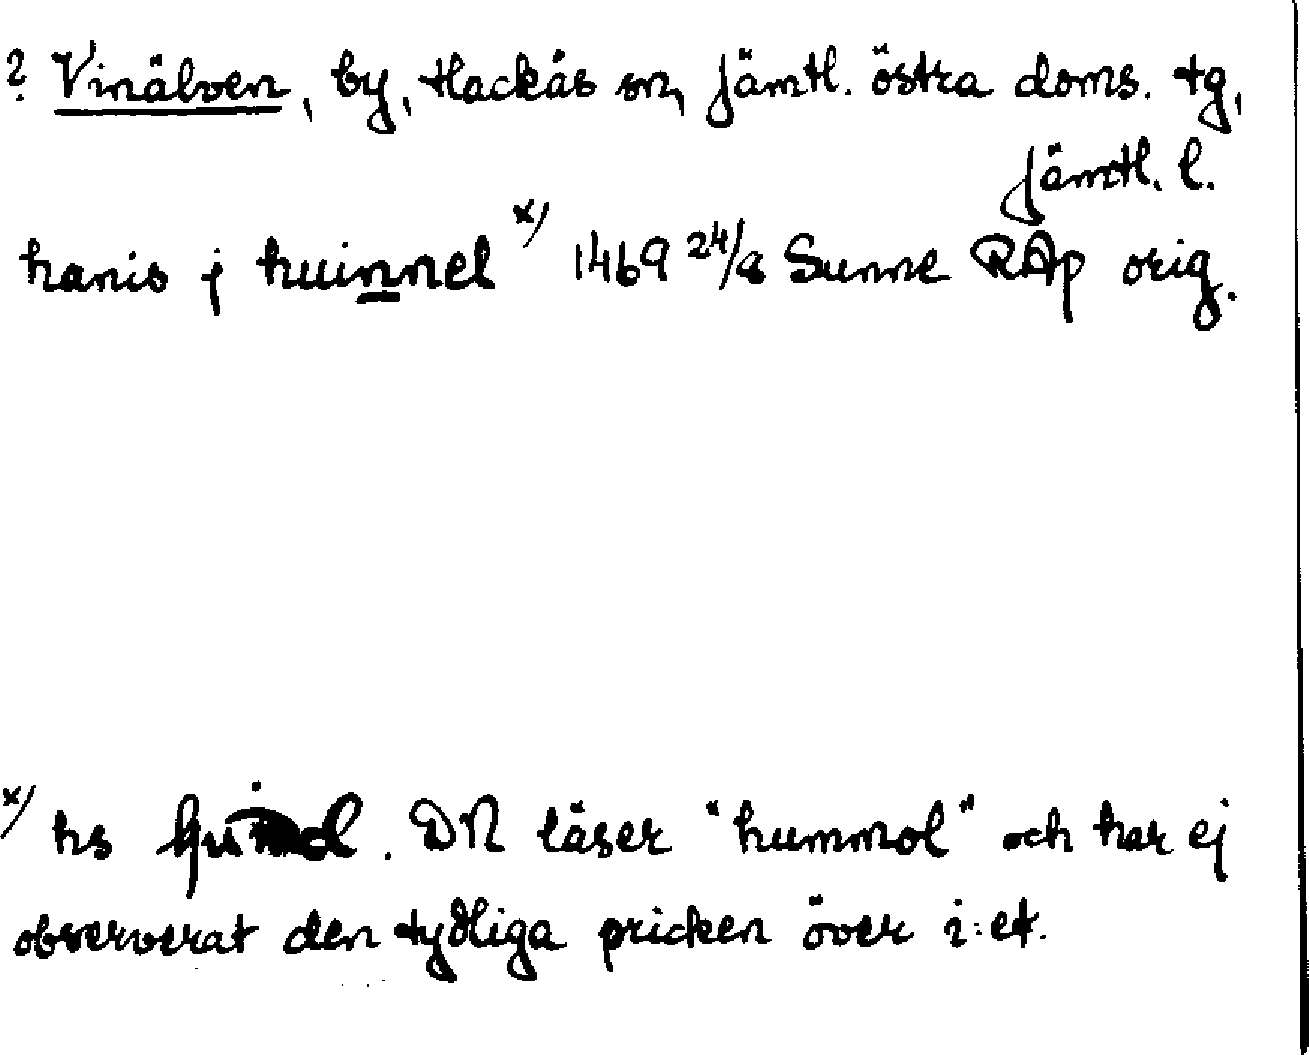 ? Vinälven, by, Hackås sn, Jämtl. östra doms. tg,
Jämtl. l.
hanis j huinnel x) 1469 24/8 Sunne RAp orig.
x) hs . DN läser "hummol" och har ej
observerat den tydliga pricken över i:et.